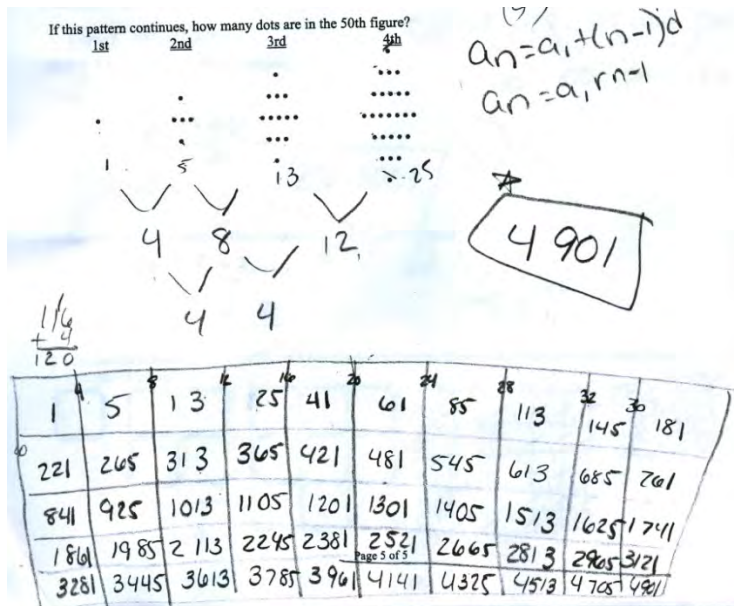 If this pattern continues, how many dots are in the 50th figure?
1st 2nd 3rd 4th
an=a1+(n-1)d
an=a1rn-1
1 5 13 25
4 8 12
4 4
4 901
116
+ 4
120
4 8 12 16 20 24 28 32 36
1 5 13 25 41 61 85 113 145 181
40
221 265 313 365 421 481 545 613 685 761
841 925 1013 1105 1201 1301 1405 1513 1625 1741
1861 1985 2113 2245 2381 2521 2665 2813 2965 3121
Page 5 of 5
3281 3445 3613 3785 3961 4141 4325 4513 4705 4901